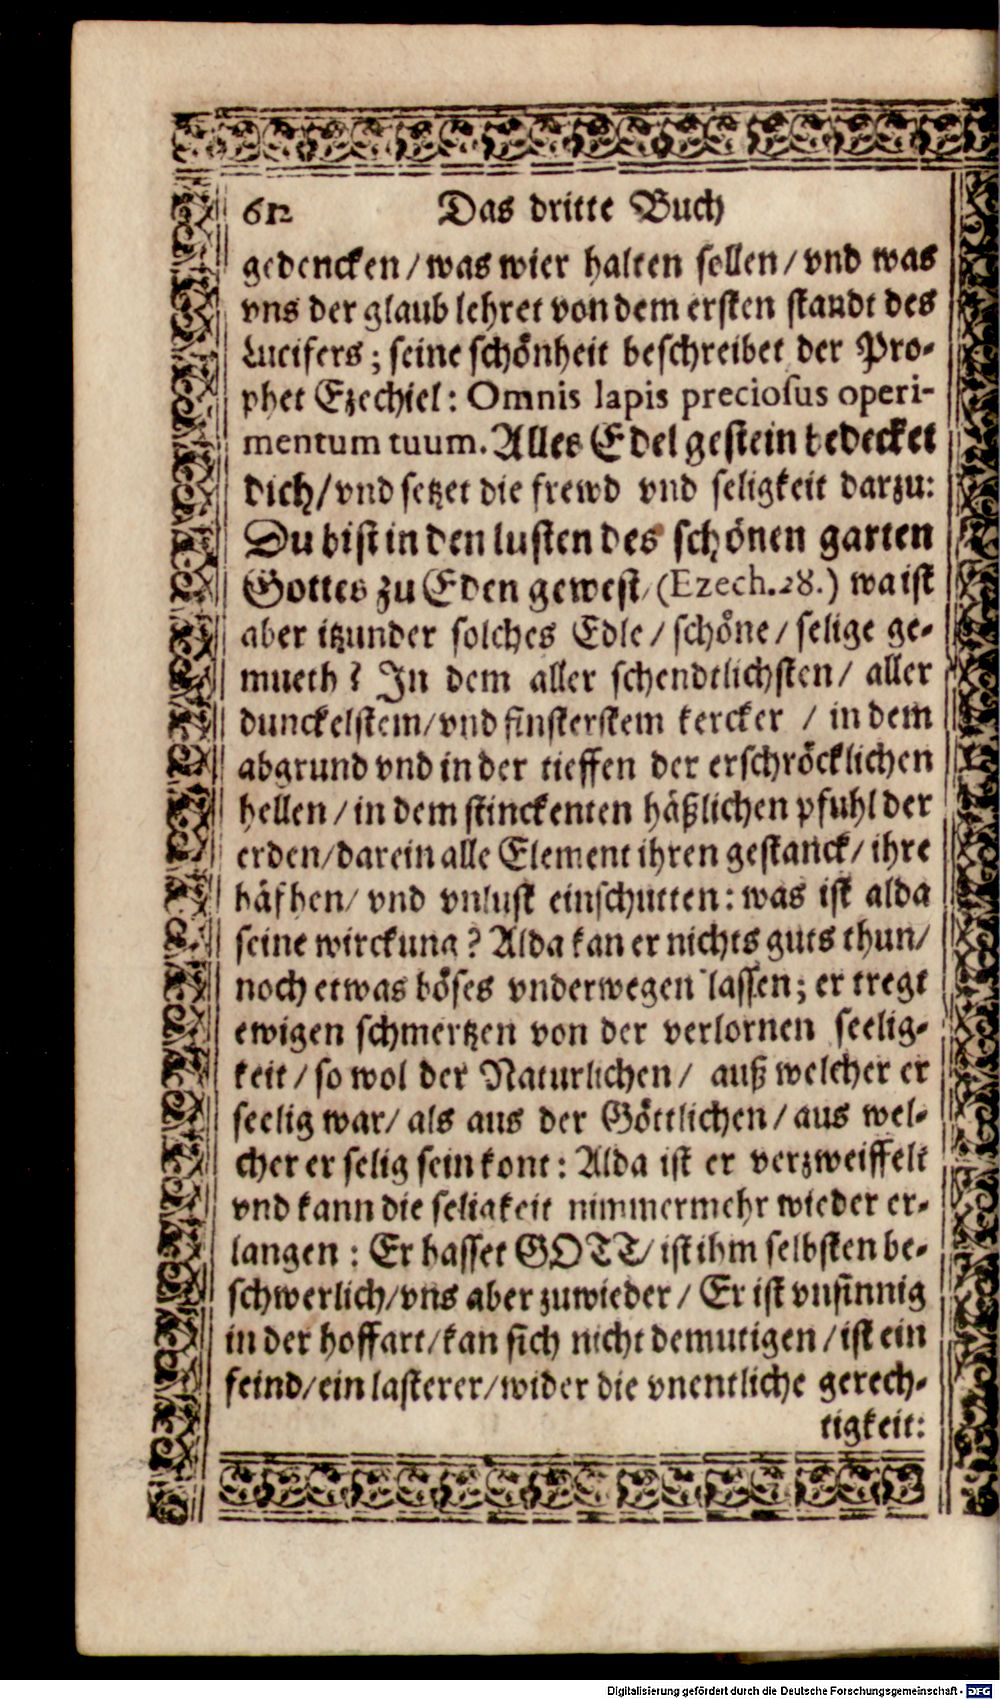 612 Das dritte Buch
gedencken/was wier halten sollen/vnd was
vns der glaub lehret von dem ersten standt des
Lucifers; seine schönheit beschreibet der Pro-
phet Ezechiel: Omnis lapis preciosus operi-
mentum tuum. Alles Edel gestein bedecket
dich/vnd setzet die frewd vnd seligkeit darzu:
Du bist in den lusten des schönen garten
Gottes zu Eden gewest/(Ezech.28.) wa ist
aber itzunder solches Edle/schöne/selige ge-
mueth? In dem aller schendtlichsten/ aller
dunckelstem/vnd finsterstem kercker / in dem
abgrund vnd in der tieffen der erschröcklichen
hellen/in dem stinckenten häßlichen pfuhl der
erden/darein alle Element ihren gestanck/ihre
häfhen/ vnd vnlust einschutten: was ist alda
seine wirckung? Alda kan er nichts guts thun/
noch etwas böses vnderwegen lassen; er tregt
ewigen schmertzen von der verlornen seelig-
keit/so wol der Naturlichen/ auß welcher er
seelig war/ als aus der Göttlichen/aus wel-
cher er selig sein kont: Alda ist er verzweiffelt
vnd kann die seligkeit nimmermehr wieder er-
langen: Er hasset GOTT/ist ihm selbsten be-
schwerlich/vns aber zuwieder/Er ist vnsinnig
in der hoffart/kan sich nicht demutigen/ist ein
feind/ein lasterer/wider die vnentliche gerech-
tigkeit:
Digitalisierung gefördert durch die Deutsche Forschungsgemeinschaft - DFG